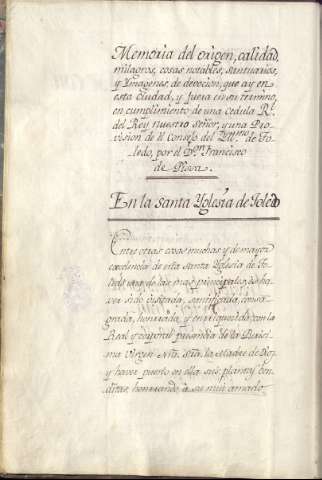 Memoria del origen, calidad,
milagros, cosas notables, santuarios,
y Ymagenes, de devocion, que ay en
esta ciudad, y fuera en su termino,
en cumplimiento de una cedula Rl.
del Rey nuestro señor, y una Pro-
vision de el Consejo del Yllmo. de To-
ledo, por el Dn. Francisco
de Pissa.
En la santa Yglesia de Toledo
Entre otras cosas muchas y de mayor
excelencia de esta santa Yglesia de To-
ledo una de las mas principales, es ha-
ver sido visitada, santificada, consa-
grada, honrrada, y enrriquecida con la
Real y corporal presencia de la Purisi-
ma Virgen Ntra. Sra. la Madre de Dios,
y haver puesto en ella sus plantas ben-
ditas, honrrando, a su mui amado